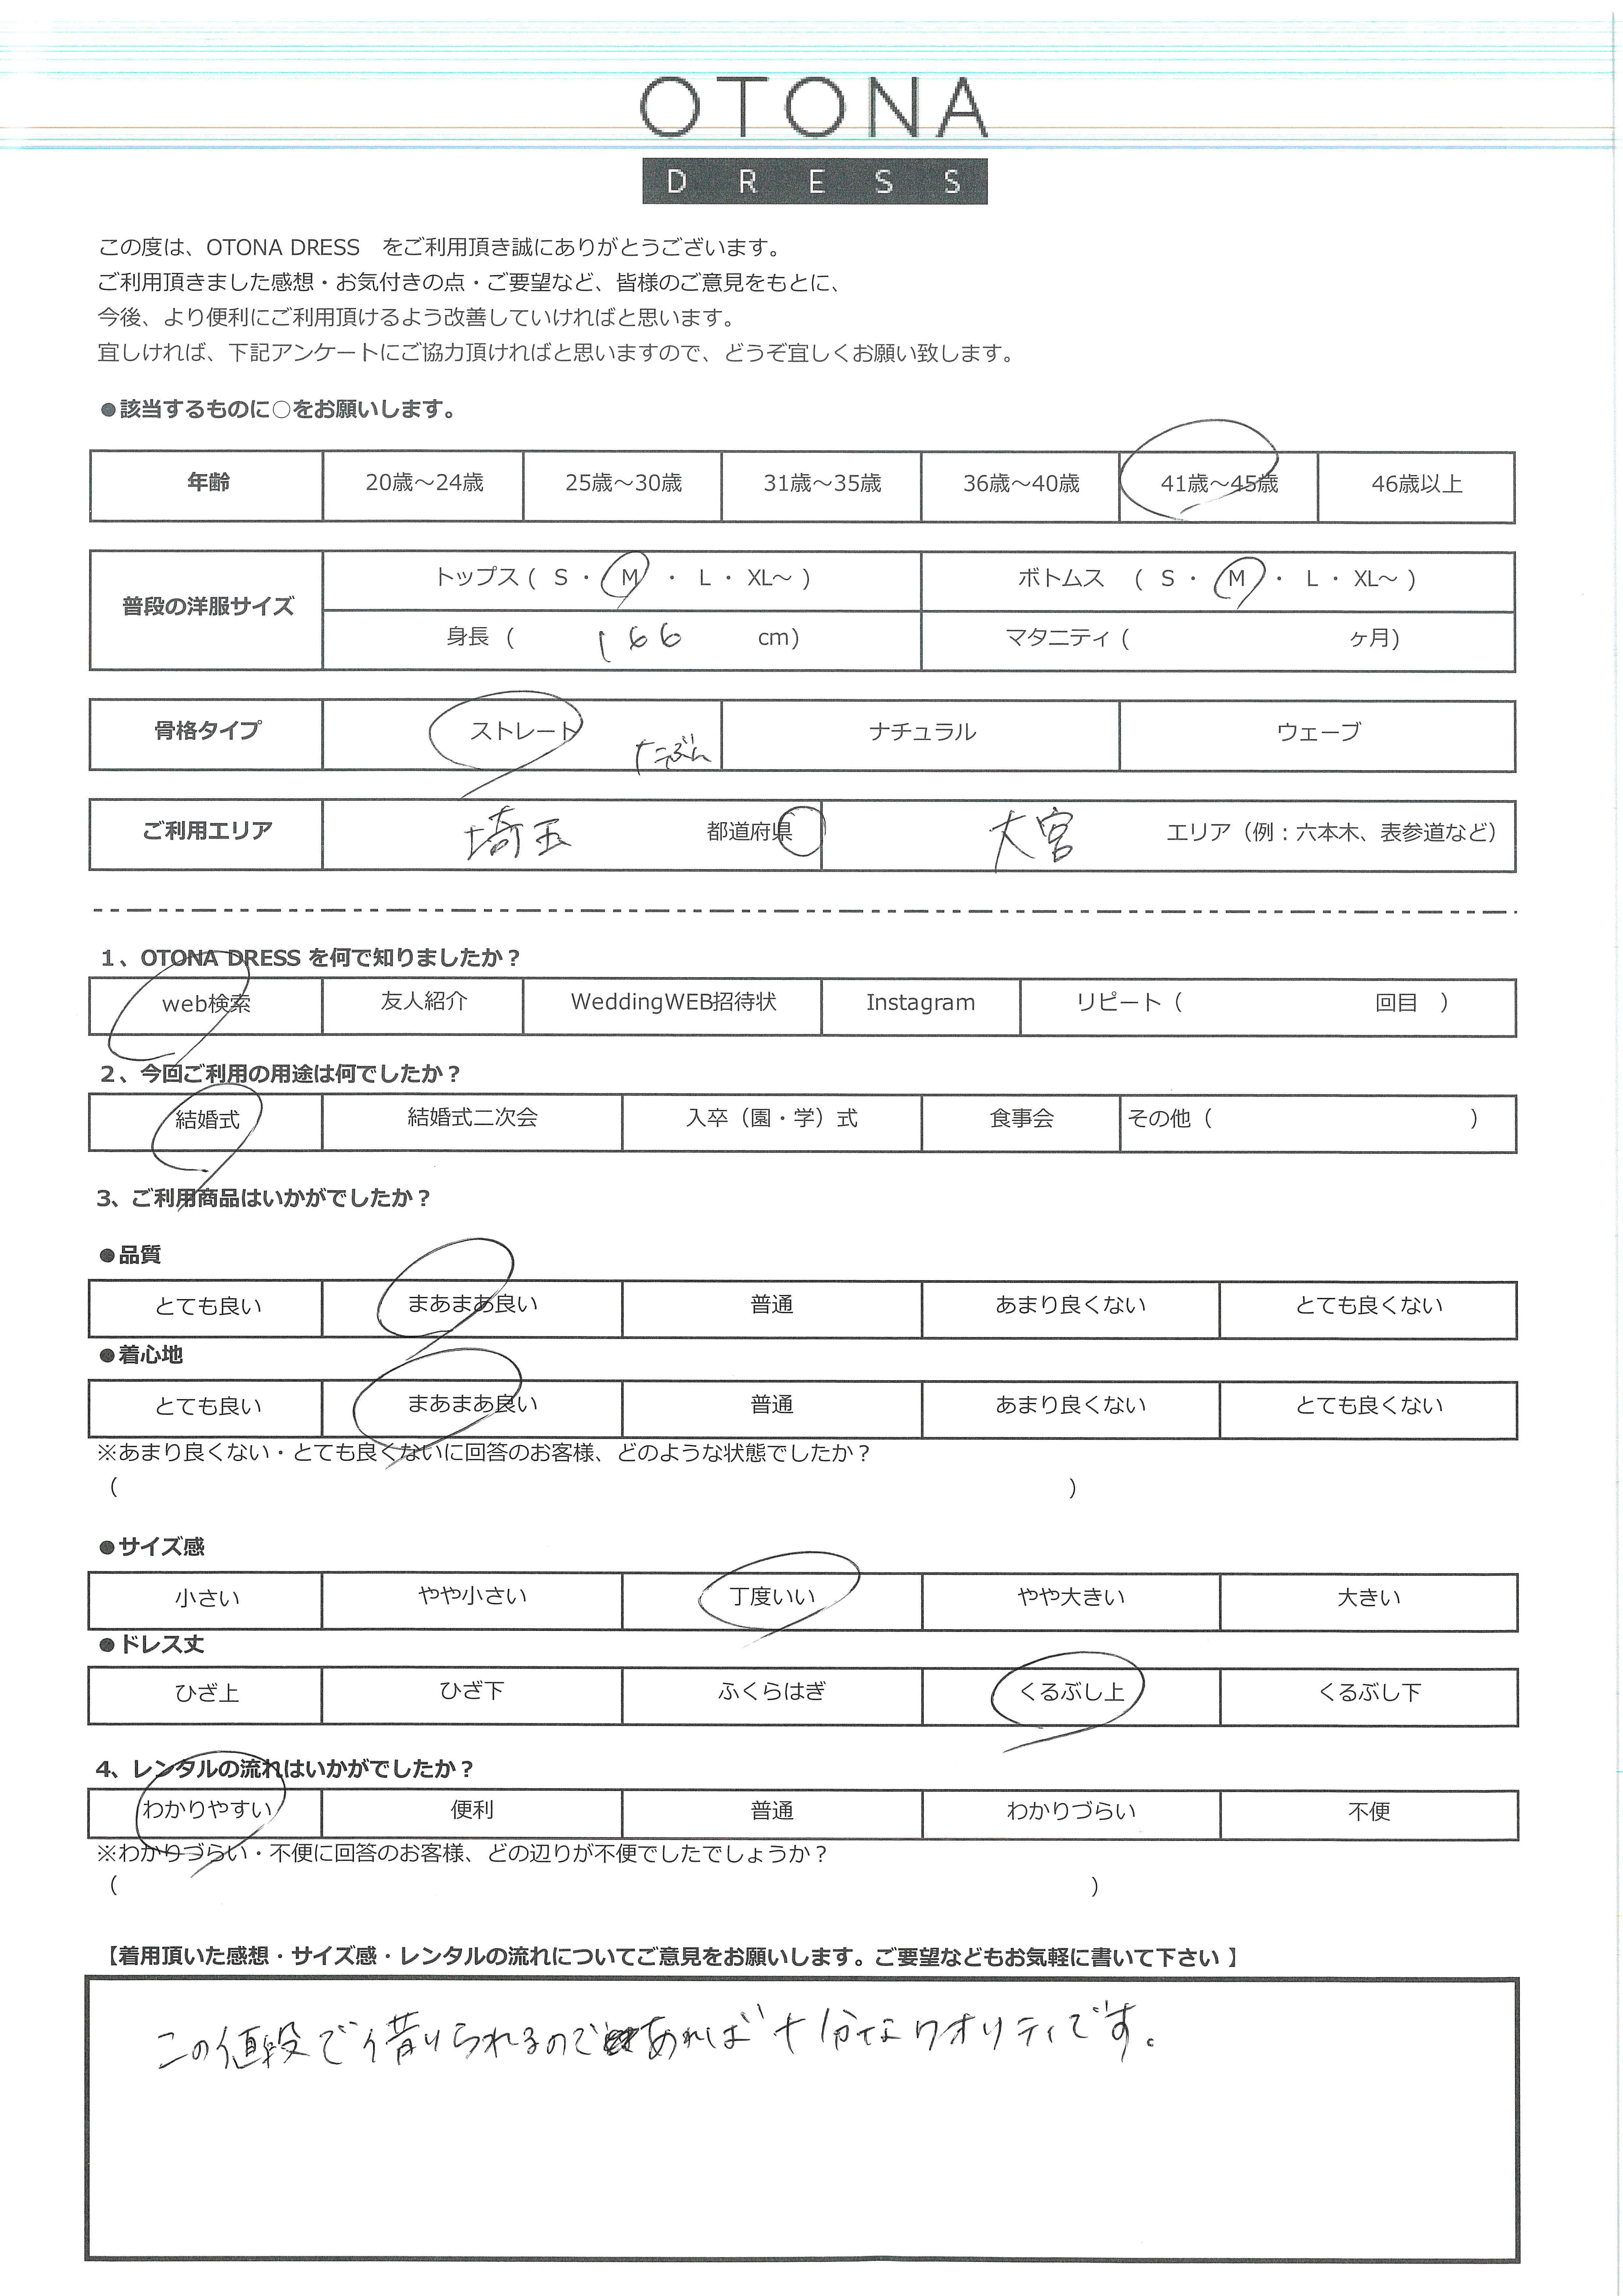 OTONA
DRESS
この度は、OTONA DRESS　をご利用頂き誠にありがとうございます。
ご利用頂きました感想・お気付きの点・ご要望など、皆様のご意見をもとに、
今後、より便利にご利用頂けるよう改善していければと思います。
宜しければ、下記アンケートにご協力頂ければと思いますので、どうぞ宜しくお願い致します。
●該当するものに○をお願いします。
年齢 20歳～24歳 25歳～30歳 31歳～35歳 36歳～40歳 41歳～45歳 46歳以上
普段の洋服サイズ トップス ( S ・ M ・ L ・ XL～ ) ボトムス ( S ・ M ・ L ・ XL～ )
身長 ( 166 cm) マタニティ ( ヶ月)
骨格タイプ ストレート たぶん ナチュラル ウェーブ
ご利用エリア 埼玉 都道府県 大宮 エリア（例：六本木、表参道など）
1、OTONA DRESS を何で知りましたか？
web検索 友人紹介 WeddingWEB招待状 Instagram リピート（ 回目 ）
2、今回ご利用の用途は何でしたか？
結婚式 結婚式二次会 入卒（園・学）式 食事会 その他（ ）
3、ご利用商品はいかがでしたか？
●品質
とても良い まあまあ良い 普通 あまり良くない とても良くない
●着心地
とても良い まあまあ良い 普通 あまり良くない とても良くない
※あまり良くない・とても良くないに回答のお客様、どのような状態でしたか？
（ ）
●サイズ感
小さい やや小さい 丁度いい やや大きい 大きい
●ドレス丈
ひざ上 ひざ下 ふくらはぎ くるぶし上 くるぶし下
4、レンタルの流れはいかがでしたか？
わかりやすい 便利 普通 わかりづらい 不便
※わかりづらい・不便に回答のお客様、どの辺りが不便でしたでしょうか？
（ ）
【着用頂いた感想・サイズ感・レンタルの流れについてご意見をお願いします。ご要望などもお気軽に書いて下さい 】
この値段で借りられるのであれば十分なクオリティです。